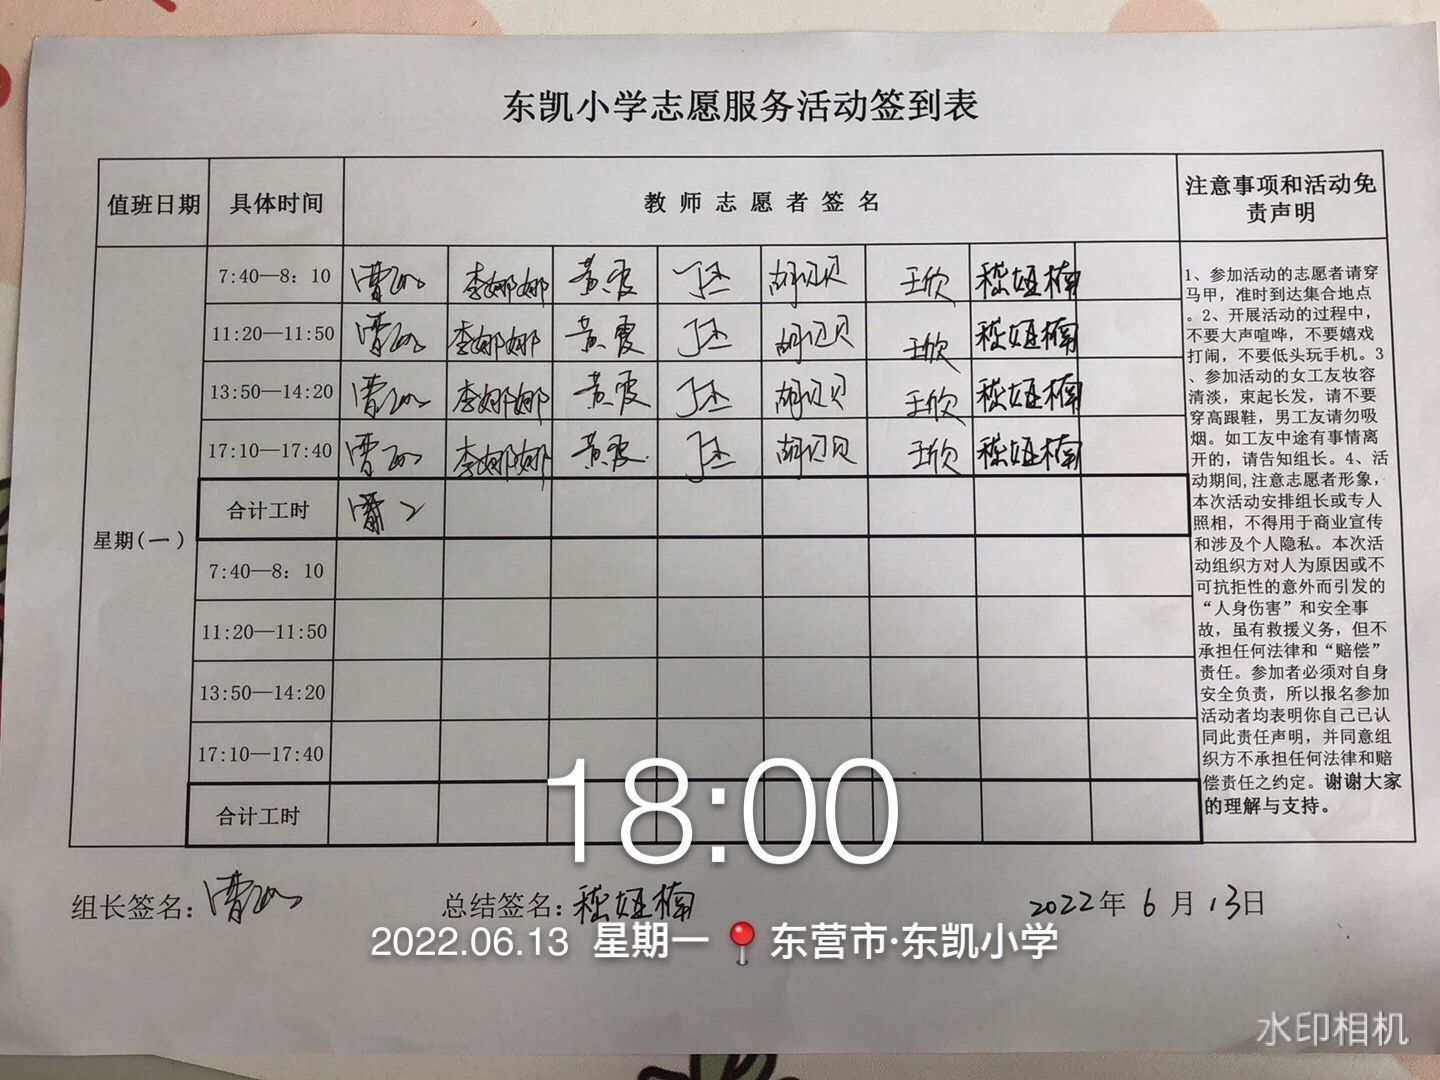 东凯小学志愿服务活动签到表
值班日期 具体时间 教师志愿者签名 注意事项和活动免
责声明
7:40—8：10 李娜娜 黄霞 胡贝贝 王欣
11:20—11:50 李娜娜 黄霞 胡贝贝 王欣
13:50—14:20 李娜娜 黄霞 胡贝贝 王欣
17:10—17:40 李娜娜 黄霞 胡贝贝 王欣
合计工时
星期(一)
7:40—8：10
11:20—11:50
13:50—14:20
17:10—17:40
合计工时
1、参加活动的志愿者请穿
马甲，准时到达集合地点
。2、开展活动的过程中，
不要大声喧哗，不要嬉戏
打闹，不要低头玩手机。3
、参加活动的女工友妆容
清淡，束起长发，请不要
穿高跟鞋，男工友请勿吸
烟。如工友中途有事情离
开的，请告知组长。4、活
动期间,注意志愿者形象，
本次活动安排组长或专人
照相，不得用于商业宣传
和涉及个人隐私。本次活
动组织方对人为原因或不
可抗拒性的意外而引发的
“人身伤害”和安全事
故，虽有救援义务，但不
承担任何法律和“赔偿”
责任。参加者必须对自身
安全负责，所以报名参加
活动者均表明你自己己认
同此责任声明，并同意组
织方不承担任何法律和赔
偿责任之约定。谢谢大家
的理解与支持。
18:00
组长签名： 总结签名： 2022年 6 月 13日
2022.06.13 星期一 东营市·东凯小学
水印相机